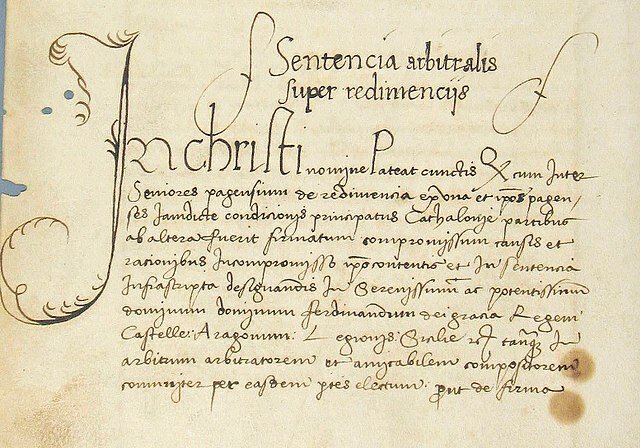 Sentencia arbitralis
super redimencijs
In christi nomine Pateat cunctis Qx cum Inter
Seniores pagensium de redimencia ex vna et ipos pagen-
ses Jamdicte condicionis principatus Cathalonie partibus
ab altera fuerit firmatum compromissum causis et
racionibus Incompromisso ipo contentis et In sentencia
Infrascripta designandis In Serenissimum ac potentissimum
dominum dominum ferdinandum dei gracia Regem
Castelle: Aragonum: Legionis: Sicilie tanq̃ In
arbitrum arbitratorem et amicabilem compositorem
comuniter per easdem ptes electum: prout de firma